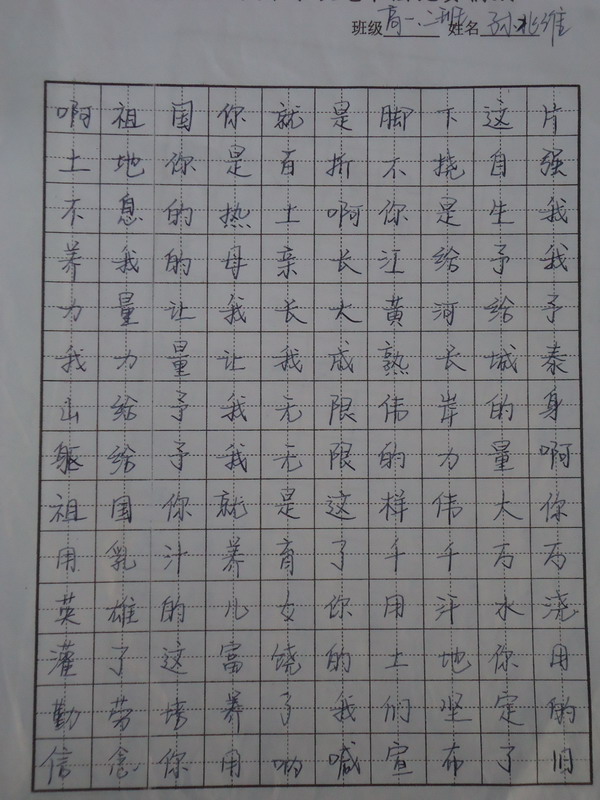 班级 高一.二班 姓名 孙兆维
啊祖国你就是脚下这片
土地你是百折不挠自强
不息的热土啊你是生我
养我的母亲长江给予我
力量让我长大黄河给予
我力量让我成熟长城泰
山给予我无限伟岸的身
躯给予我无限的力量啊
祖国你就是这样伟大你
用乳汁养育了千千万万
英雄的儿女你用汗水浇
灌了这富饶的土地你用
勤劳培养了我们坚定的
信念你用呐喊宣布了旧